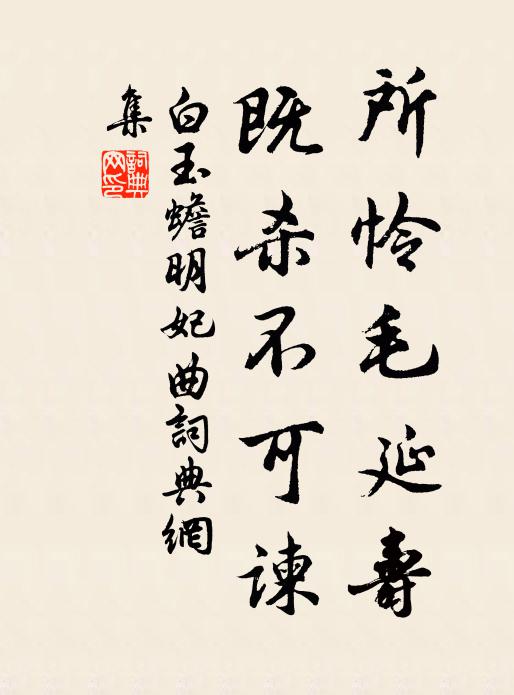 所怜毛延壽
既杀不可谏
白玉蟾明妃曲詞典網
集
詞典
网印